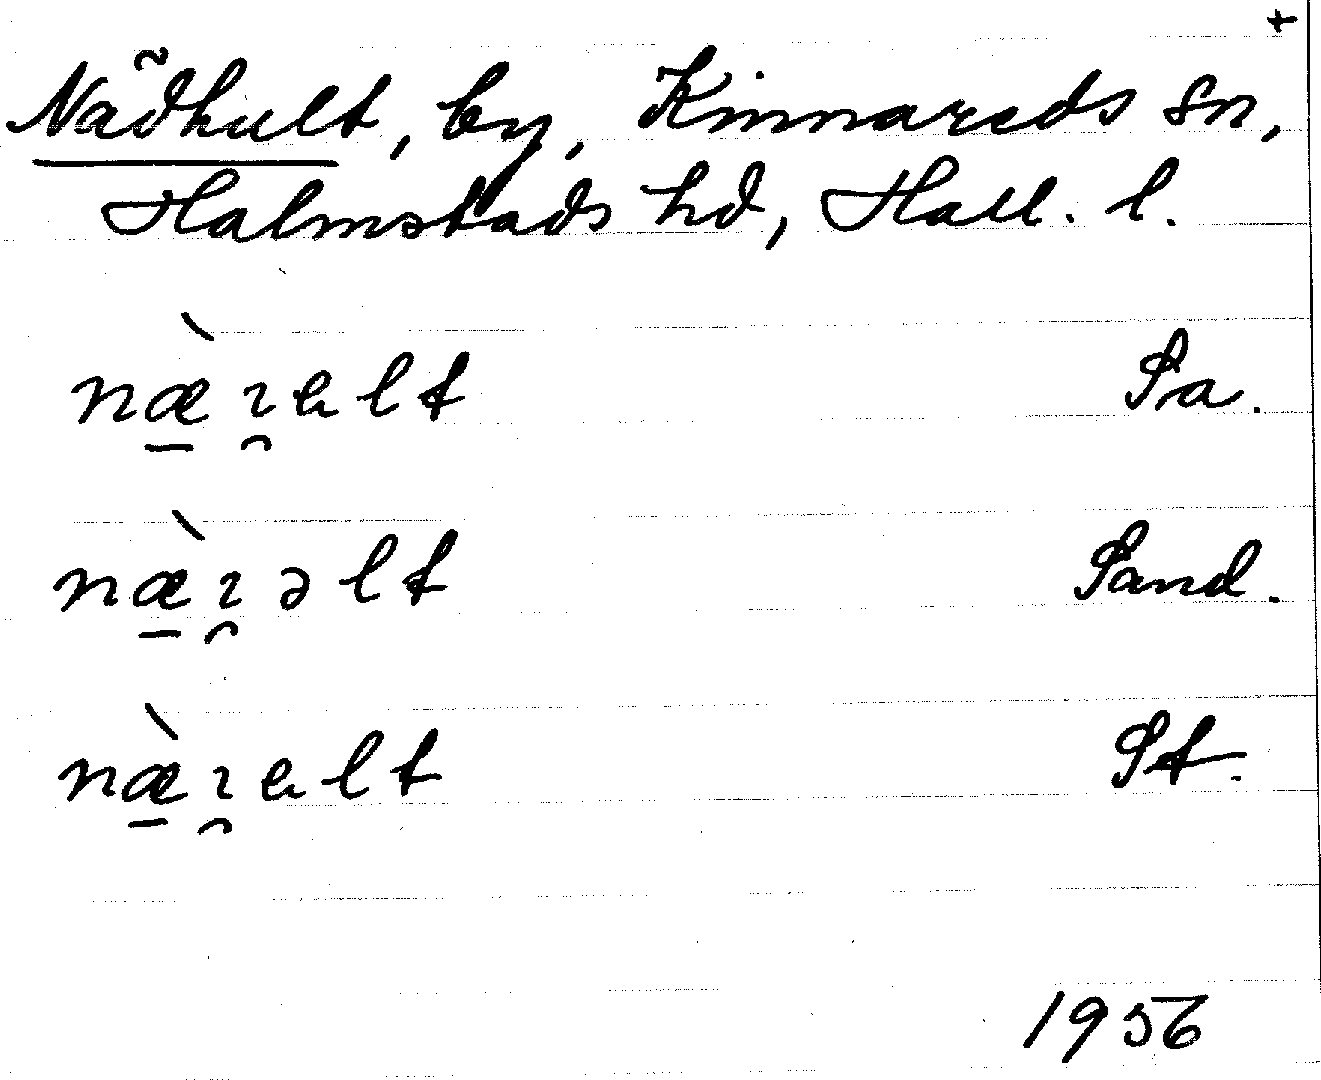 +
Nãdhult, by, Kinnareds sn,
Halmstads hd, Hall. l.
næ̱̀ɿ̯alt Sa.
næ̱̀ɿ̯əlt Sand.
næ̱̀ɿ̯alt St.
1956